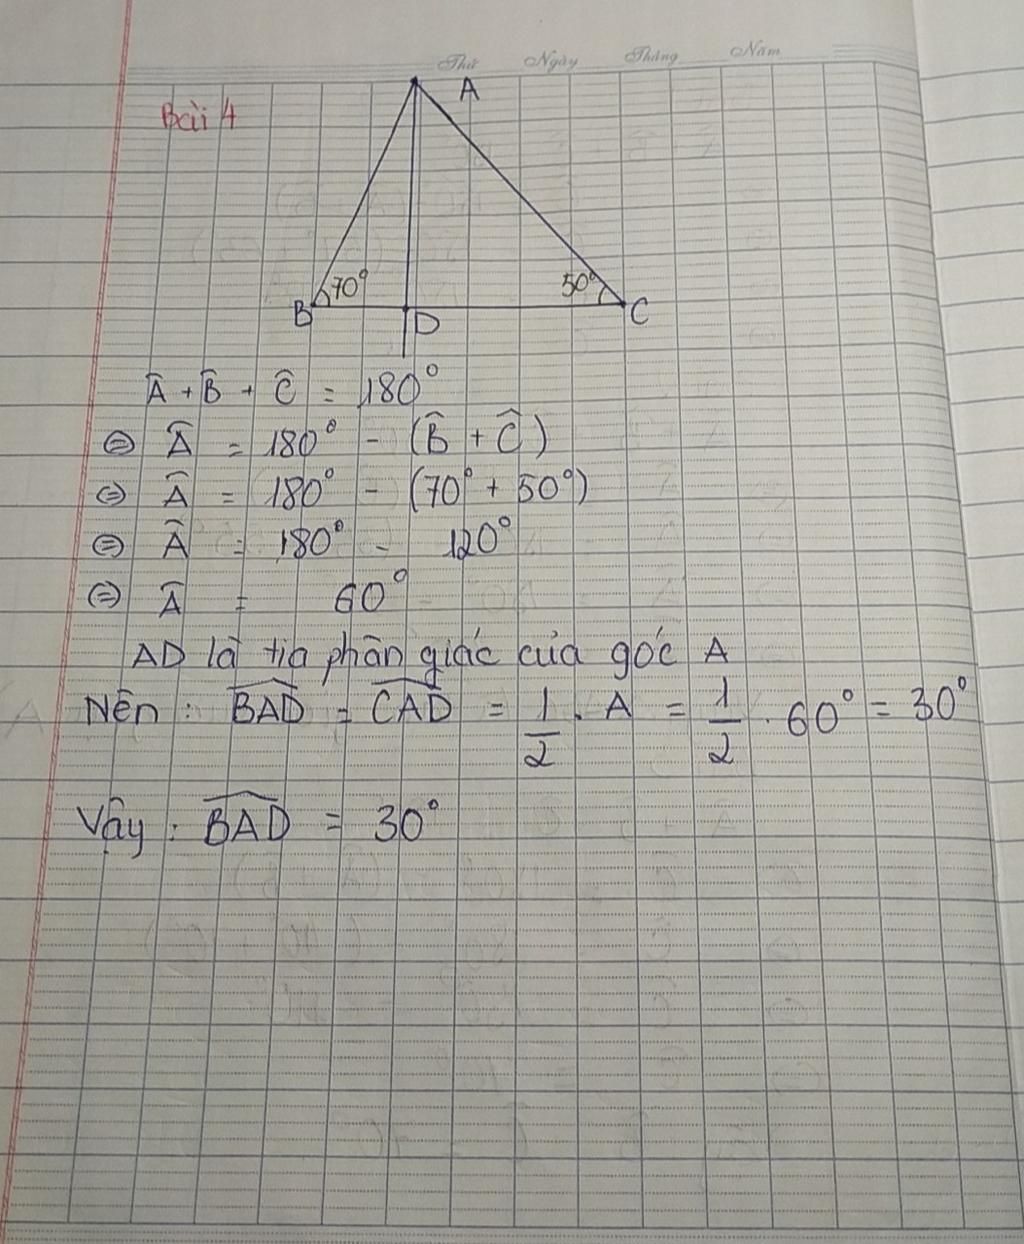 Thứ Ngày Tháng Năm
Bài 4
A
70° 50°
B D C
Â + B̂ + Ĉ = 180°
⇔ Â = 180° - (B̂ + Ĉ)
⇔ Â = 180° - (70° + 50°)
⇔ Â = 180° - 120°
⇔ Â = 60°
AD là tia phân giác của góc A
Nên : \widehat{BAD} = \widehat{CAD} = 1/2 . A = 1/2 . 60° = 30°
Vậy : \widehat{BAD} = 30°